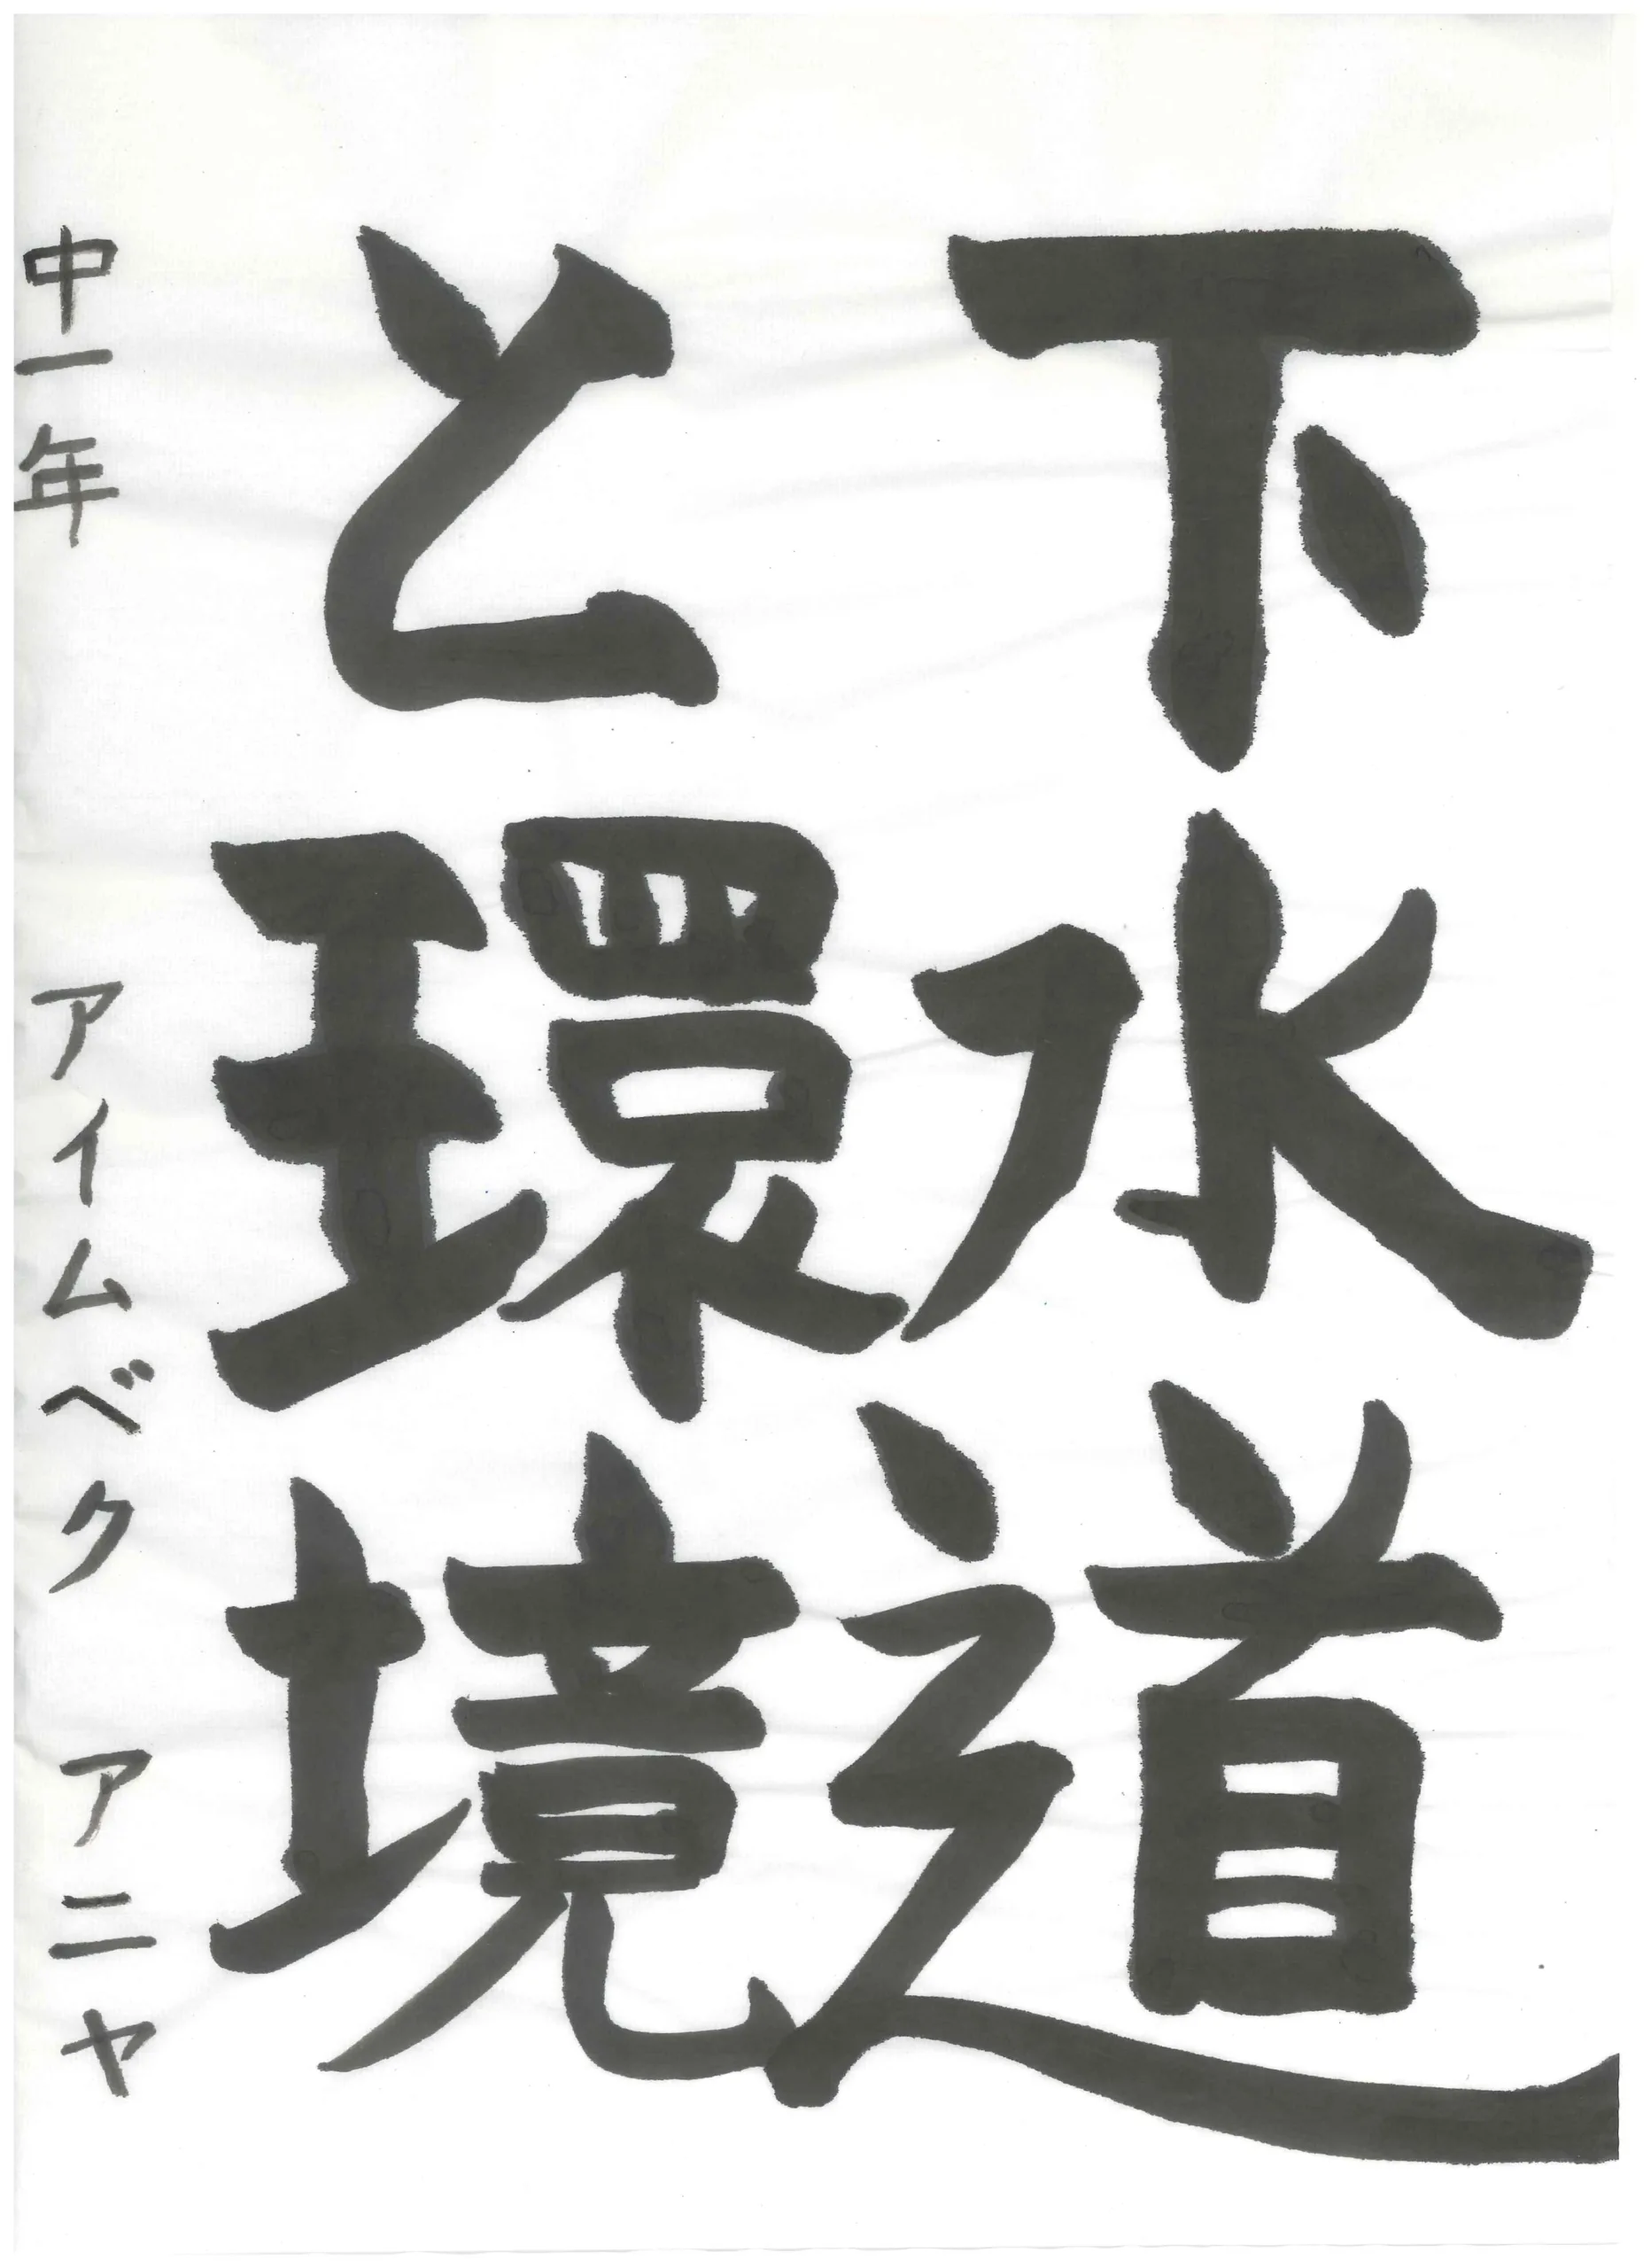 下水道
と環境
中一年 アイムベク アニヤ